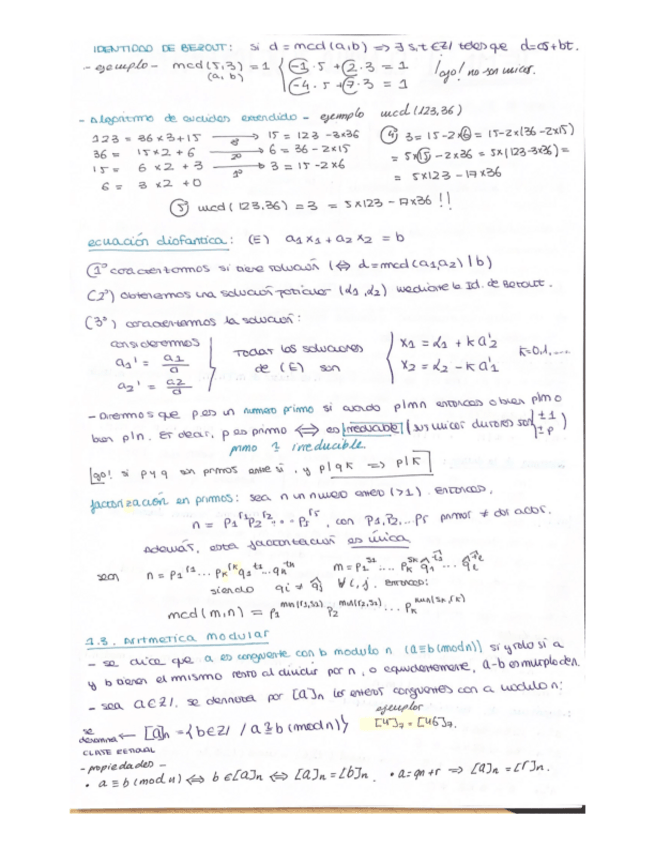 IDENTIDAD DE BEZOUT: si d = mcd(a,b) => ∃ s,t ∈ Z tales que d=as+bt.
- ejemplo - mcd(5,3) = 1 { -1·5 + 2·3 = 1
(a, b) -4·5 + 7·3 = 1 ¡ojo! no son únicas.
- Algoritmo de euclides extendido - ejemplo mcd(123,36)
123 = 36x3+15 → 15 = 123 - 3x36 ④ 3 = 15-2x6 = 15-2x(36-2x15)
36 = 15x2+6 → 2º 6 = 36-2x15 = 5x15-2x36 = 5x(123-3x36) =
15 = 6x2+3 → 1º 3 = 15-2x6 = 5x123-17x36
6 = 3x2+0
⑤ mcd(123,36) = 3 = 5x123-17x36 !!
ecuación diofántica: (E) a₁x₁ + a₂x₂ = b
(1º caracterizamos si tiene solución (⇔ d=mcd(a₁,a₂) | b)
(2º) obtenemos una solución particular (α₁,α₂) mediante la Id. de Bezout.
(3º) caracterizamos la solución:
consideremos
a₁' = a₁/d
a₂' = a₂/d
} Todas las soluciones de (E) son { x₁ = α₁ + k a₂'
x₂ = α₂ - k a₁' k=0,1,....
- Diremos que p es un numero primo si cuando p|mn entonces o bien p|m o
bien p|n. Es decir, p es primo ⇔ es irreducible (sus unicos divisores son { ±1 ±p )
primo irreducible.
¡ojo! si p y q son primos entre si, y p|qk => p|k
factorización en primos: sea n un numero entero (>1). entonces,
n = p₁^r₁ p₂^r₂ ... pₛ^rₛ, con p₁,p₂,...pₛ primos ≠ dos a dos.
Además, esta factorización es única
sean n = p₁^r₁ ... pₖ^rₖ q₁^t₁ ... qₖ^tₖ m = p₁^s₁ ... pₖ^sₖ q̂₁^t̂₁ ... q̂ₑ^t̂ₑ
siendo qᵢ ≠ q̂ⱼ ∀ i,j. entonces:
mcd(m,n) = p₁^min(r₁,s₁) p₂^min(r₂,s₂) ... pₖ^min(sₖ,rₖ)
1.3. Aritmetica modular
- se dice que a es congruente con b modulo n (a≡b(mod n)) si y solo si a
y b tienen el mismo resto al dividir por n, o equivalentemente, a-b es multiplo de n.
- sea a∈Z, se denota por [a]n los enteros congruentes con a modulo n:
ejemplos
se denomina ← [a]n = {b∈Z / a≡b(mod n)} [4]₇ = [46]₇.
CLASE RESIDUAL
- propiedades -
• a ≡ b (mod n) ⇔ b ∈ [a]n ⇔ [a]n = [b]n. • a=qn+r => [a]n = [r]n.